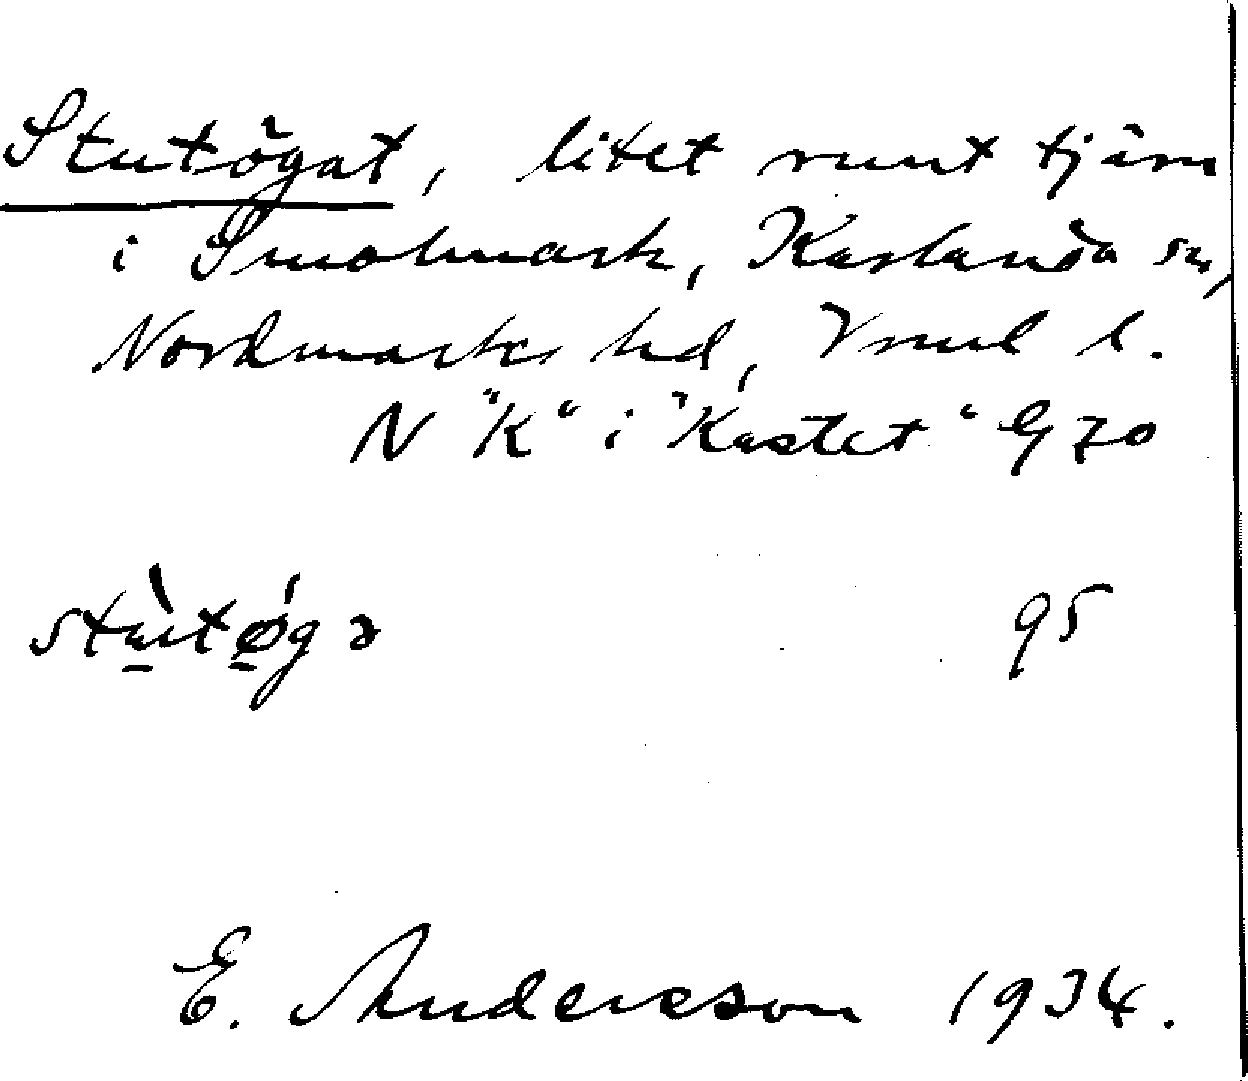 Stutögat, litet runt tjärn
i Smolmark, Karlanda sn,
Nordmarks hd, Vrml l.
N "K" i "Kastet" G 70
stu̠̇tǿ̠gə 95
E. Andersson 1934.